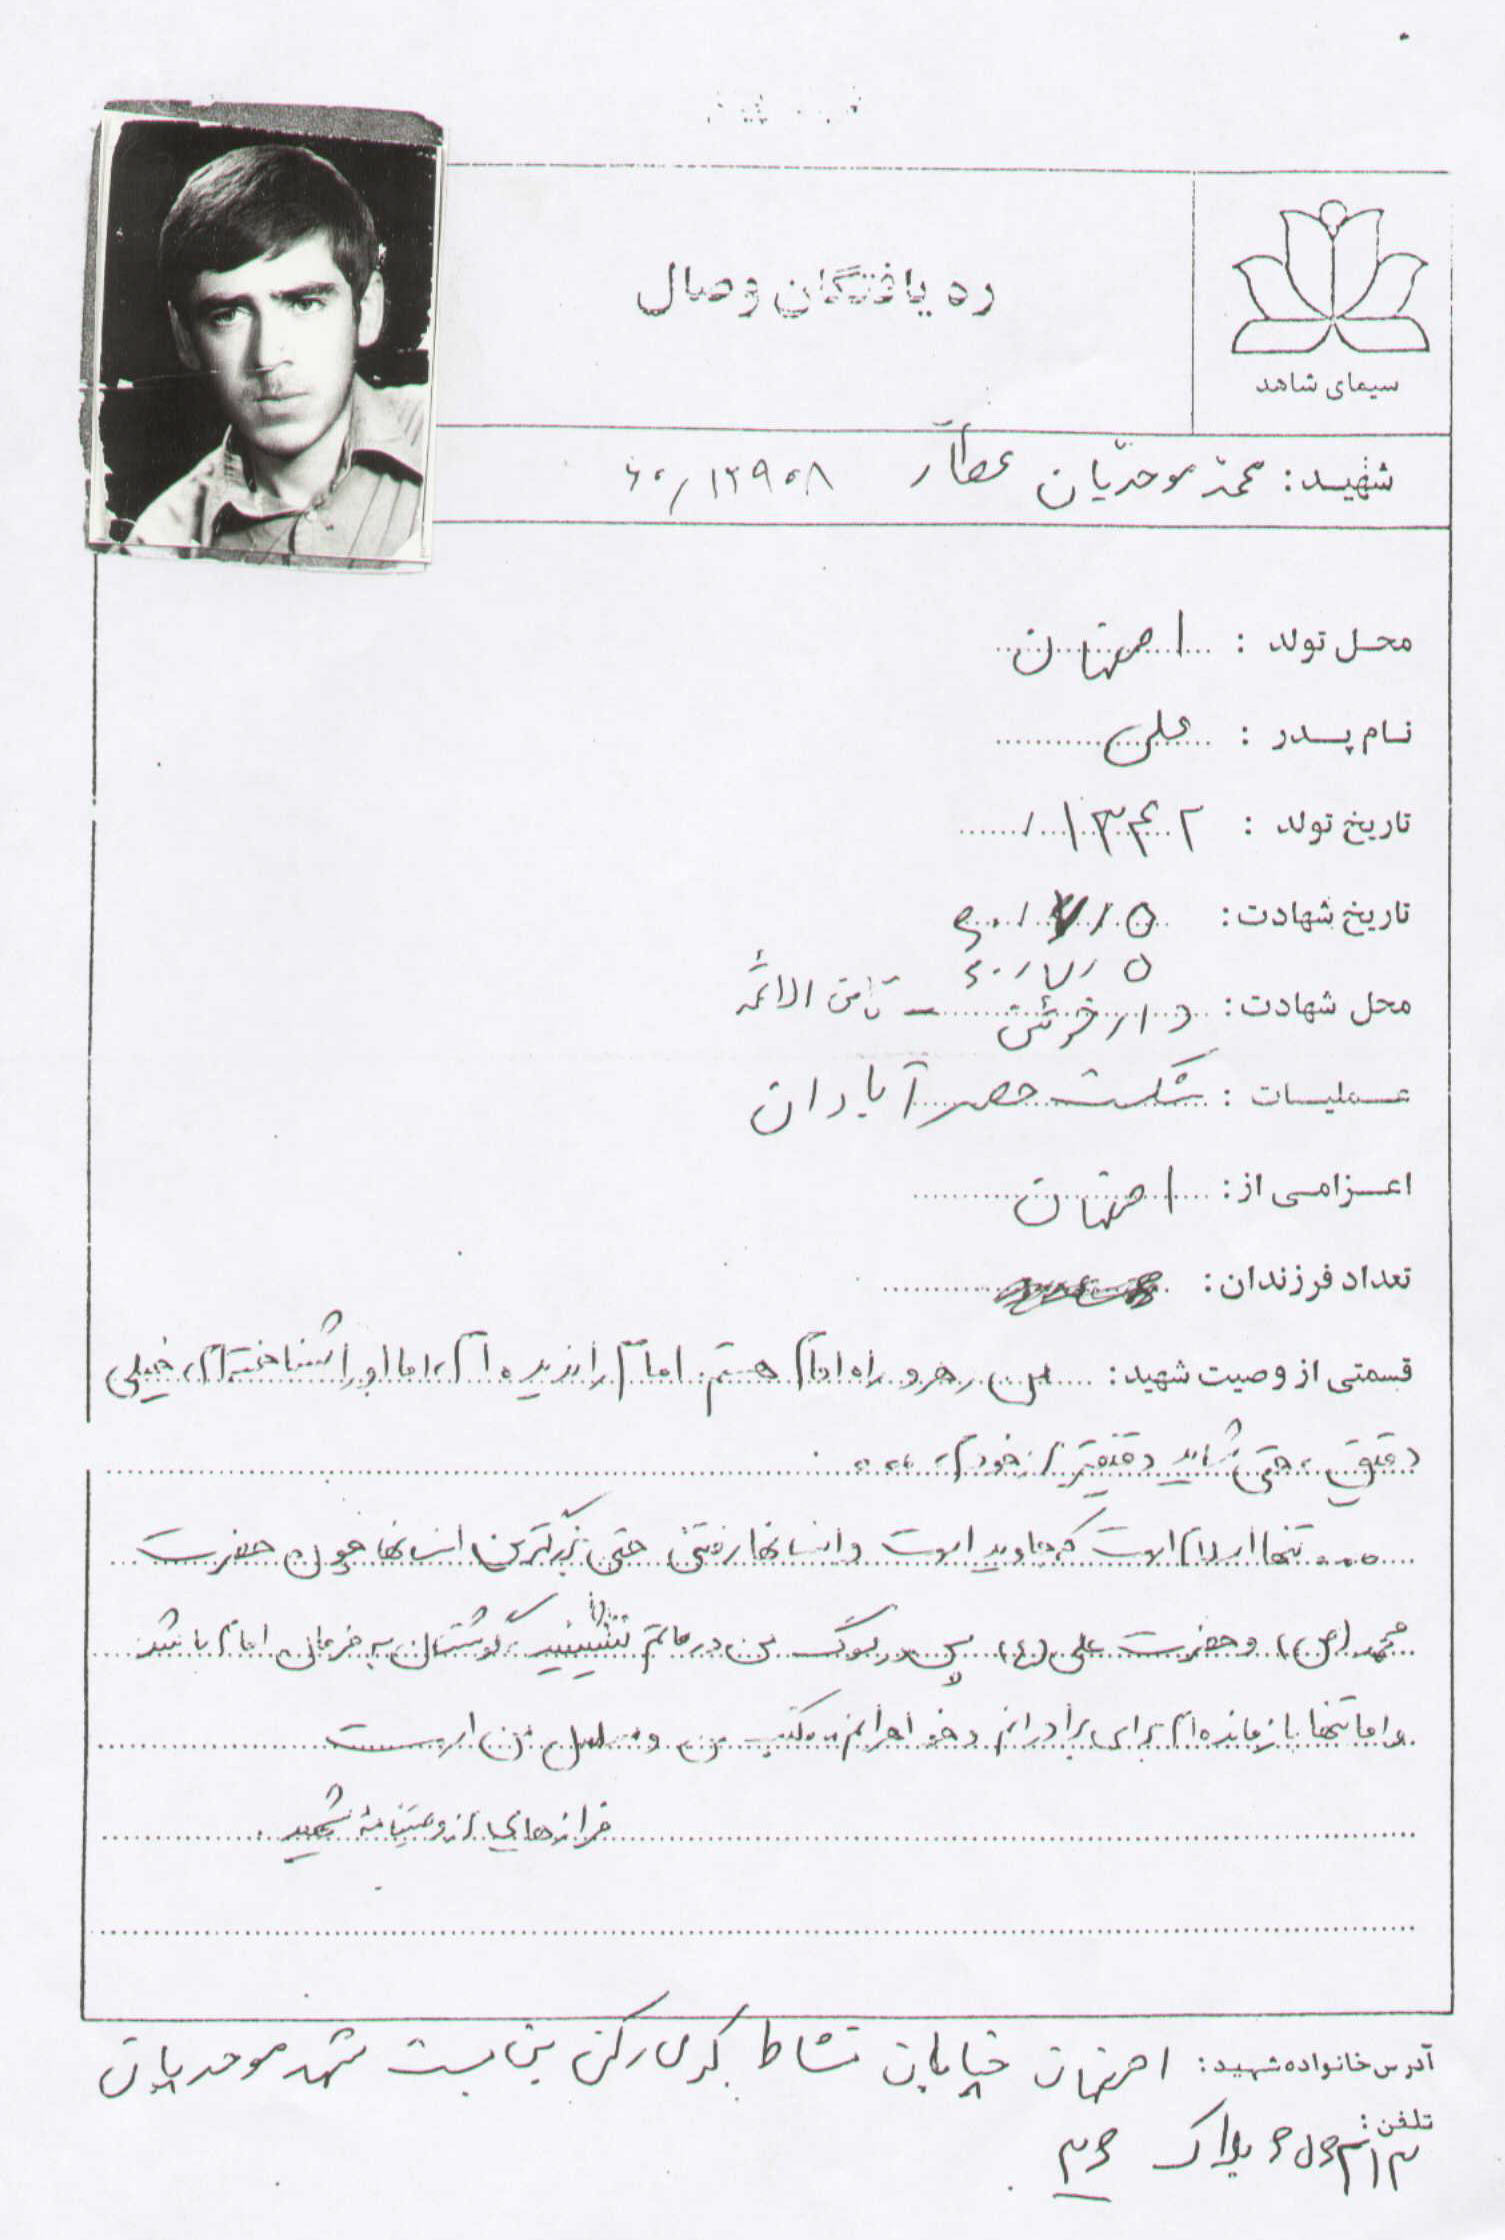 ره یافتگان وصال
سیمای شاهد
شهید: محمد موحدیان عطار ۶۰/۱۲۹۰۸
محل تولد : اصفهان
نام پدر : علی
تاریخ تولد : ۱۳۴۲
تاریخ شهادت: ۶۰/۷/۵
۶۰/۷/۵
محل شهادت: دارخوئین - ثامن الائمه
عملیات : شکست حصر آبادان
اعزامی از: اصفهان
تعداد فرزندان:
قسمتی از وصیت شهید: من رهرو راه امام هستم. امام را ندیده ام، اما او را شناخته ام، خیلی
دقیق، حتی شاید دقیقتر از خودم، ...
... تنها اسلام است که جاوید است و انسانها رفتنی حتی بزرگترین انسانها چون حضرت
محمد (ص) و حضرت علی (ع) پس در سوگ من در ماتم ننشینید، گوشتان به فرمان امام باشد
و اما تنها بازمانده ام برای برادرانم و خواهرانم مکتب من و سلاح من است
فرازهایی از وصیتنامهٔ شهید.
آدرس خانواده شهید: اصفهان خیابان نشاط بن بست شهید موحدیان
تلفن:
پلاک